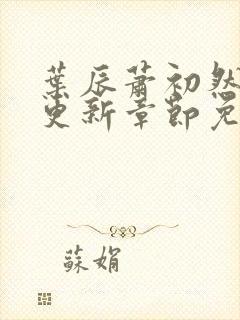 葉辰蕭初然
更新章節免
蘇娟